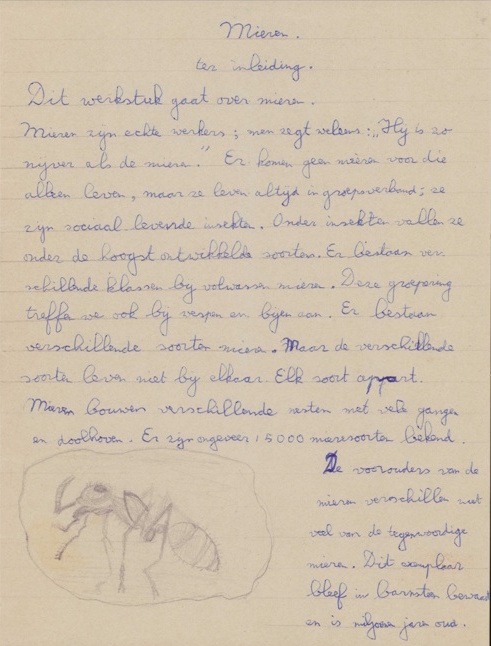 Mieren.
ter inleiding.
Dit werkstuk gaat over mieren.
Mieren zijn echte werkers; men zegt weleens: „Hij is zo
nijver als de mieren." Er komen geen mieren voor die
alleen leven, maar ze leven altijd in groepsverband; ze
zijn sociaal levende insekten. Onder insekten vallen ze
onder de hoogst ontwikkelde soorten. Er bestaan ver
schillende klassen bij volwassen mieren. Deze groepering
treffen we ook bij wespen en bijen aan. Er bestaan
verschillende soorten mieren. Maar de verschillende
soorten leven niet bij elkaar. Elk soort appart.
Mieren bouwen verschillende nesten met vele gangen
en doolhoven. Er zijn ongeveer 15000 mieresoorten bekend.
De voorouders van de
mieren verschillen niet
veel van de tegenwoordige
mieren. Dit exemplaar
bleef in barnsteen bewaard
en is miljoenen jaren oud.